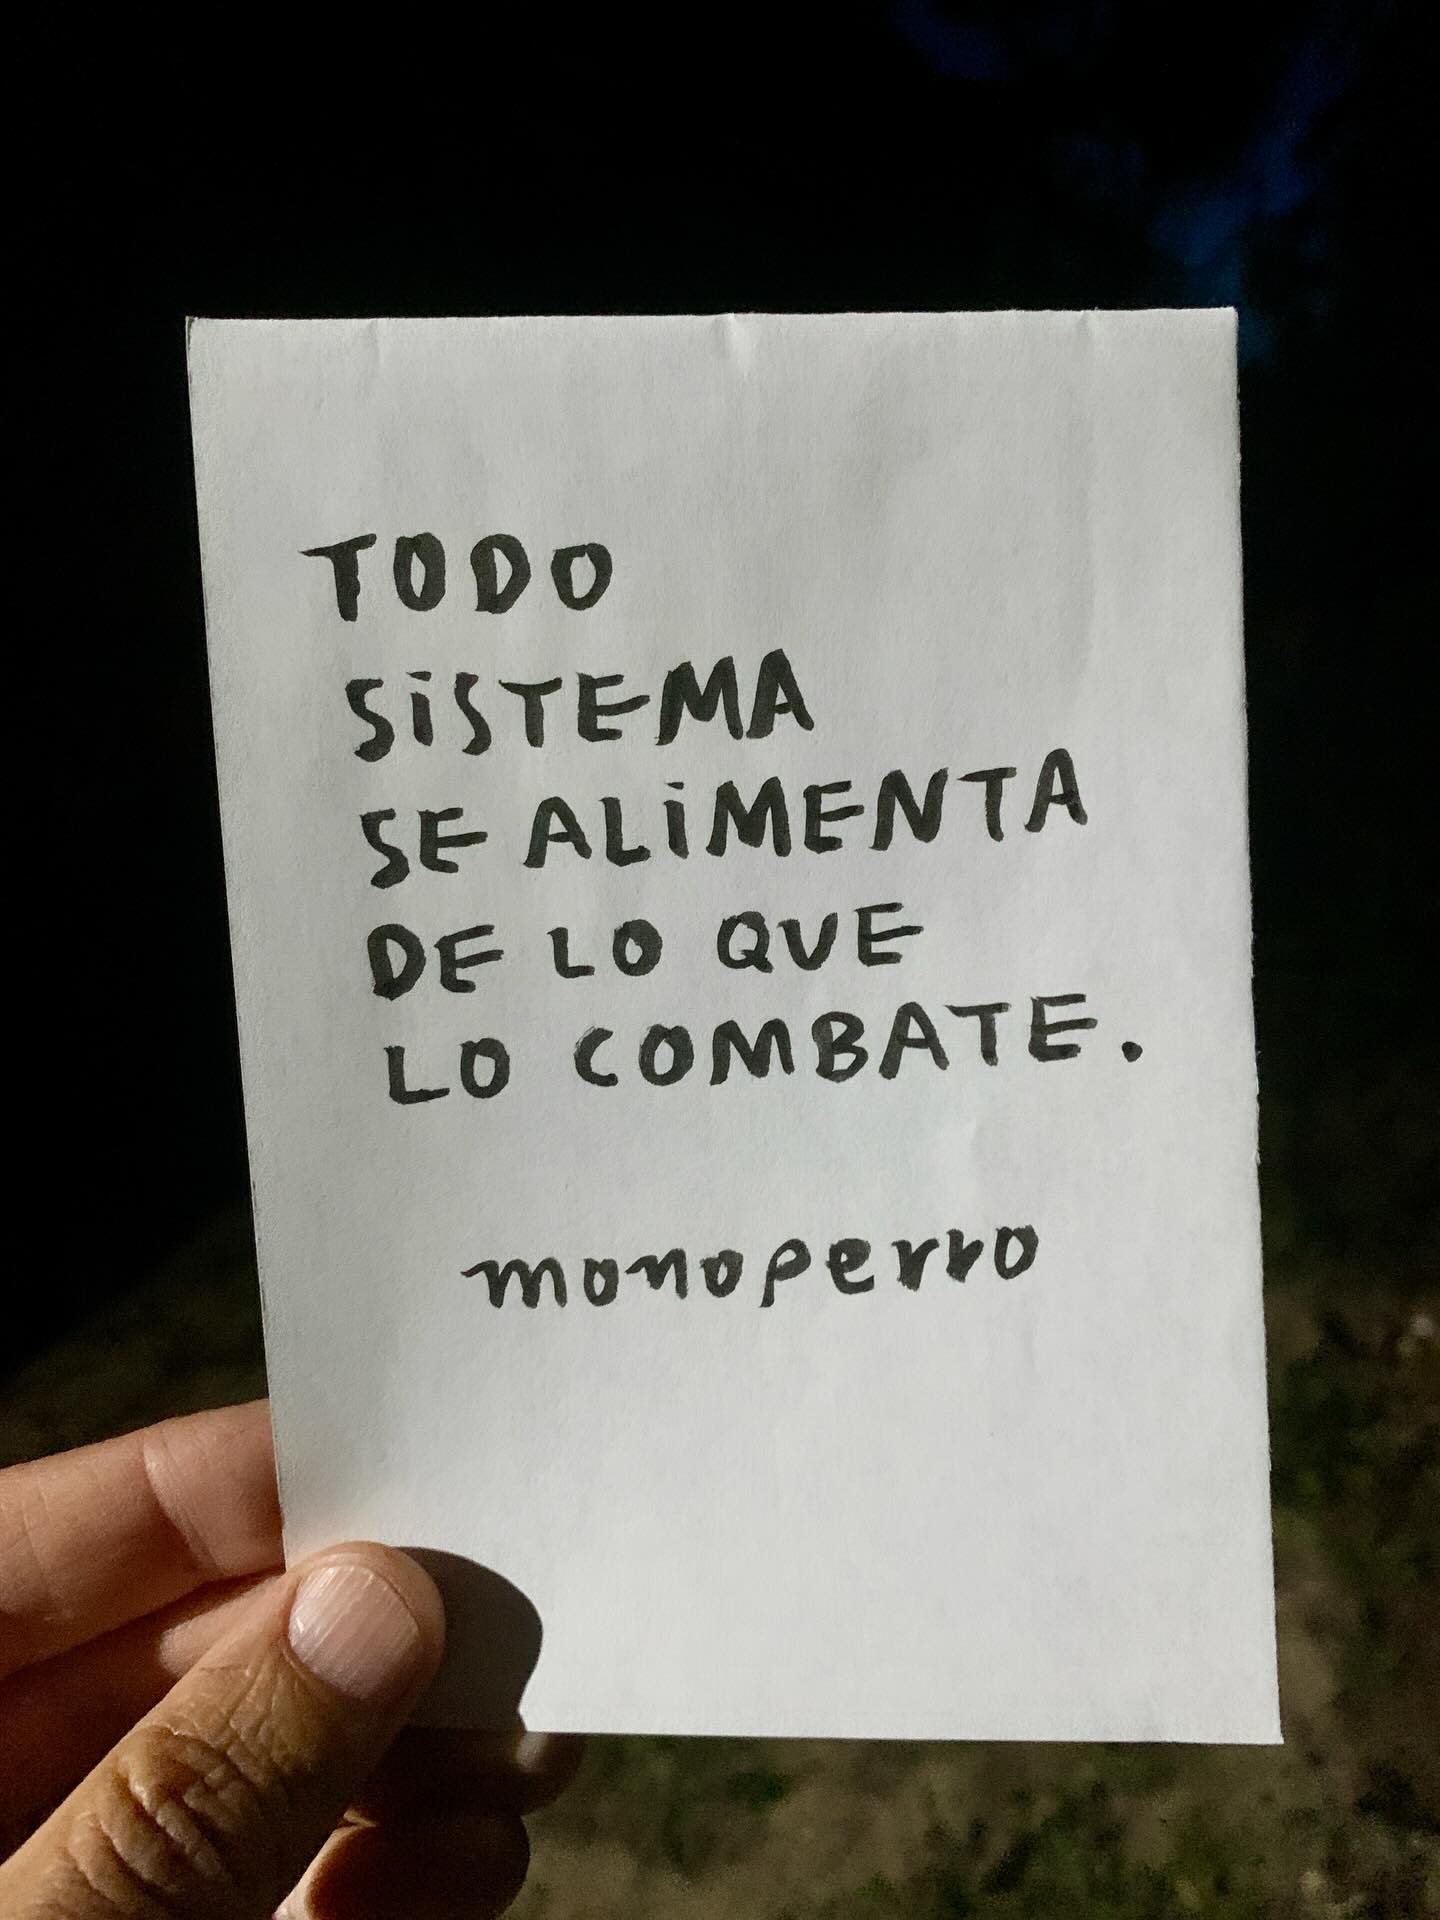 TODO
SiSTEMA
SE ALiMENTA
DE LO QUE
LO COMBATE.
monoperro